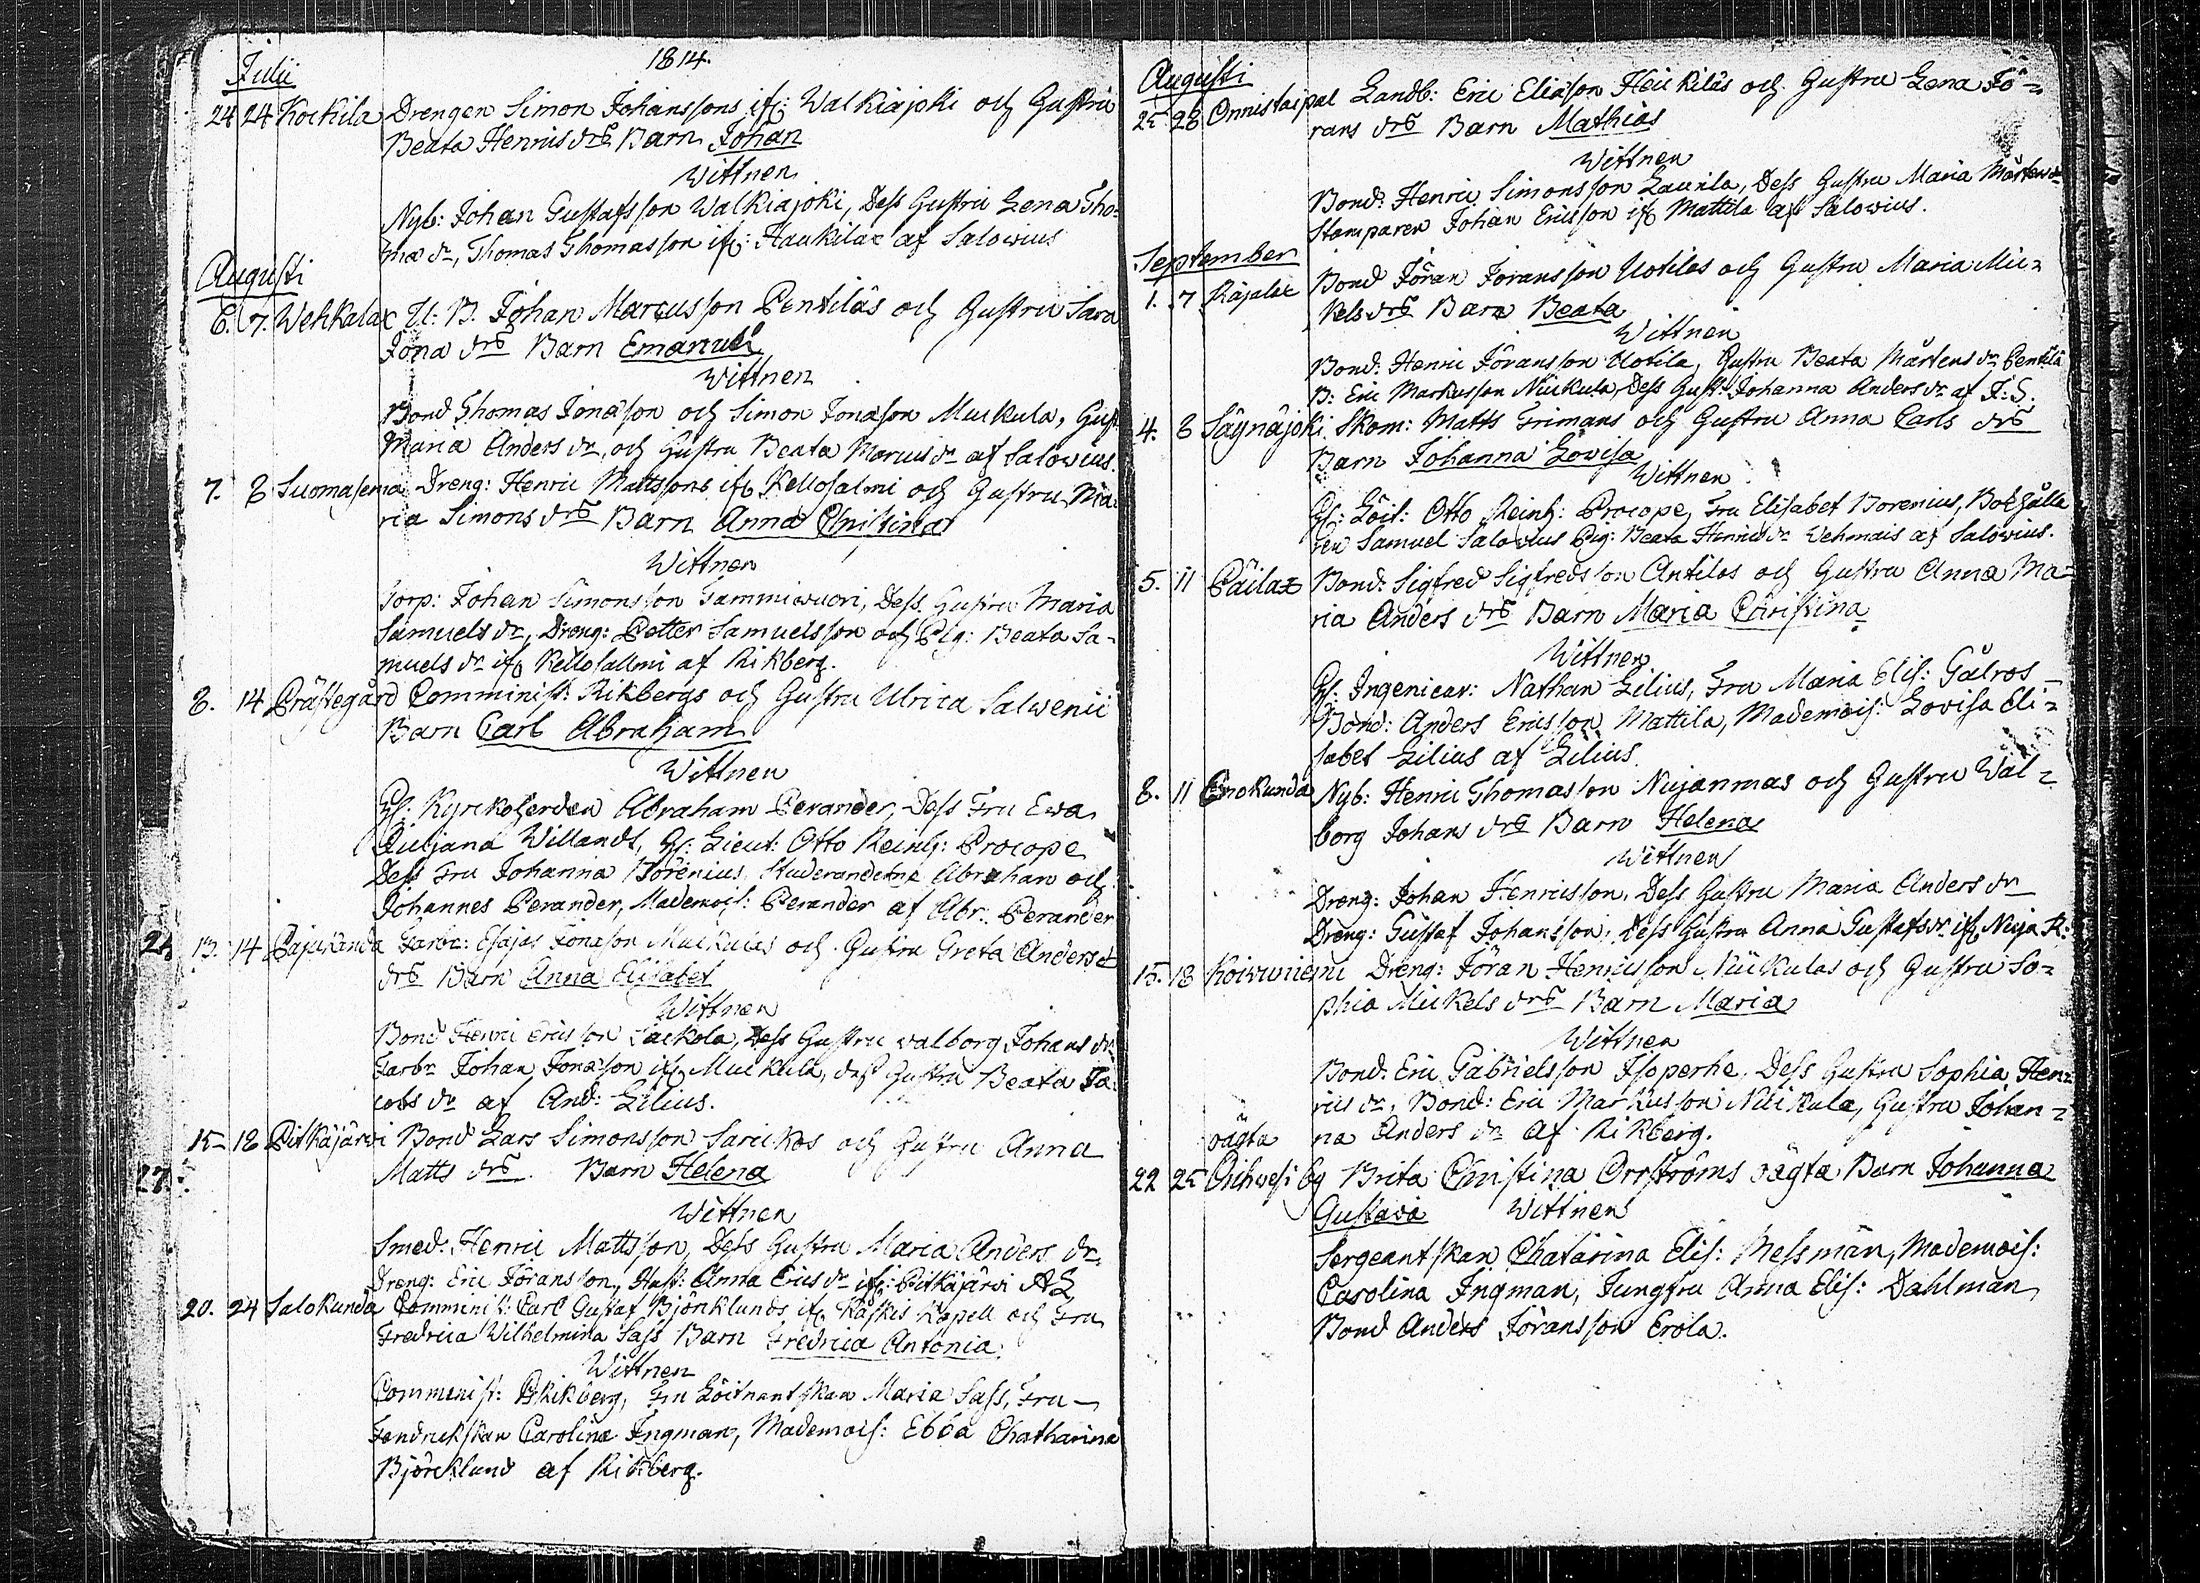 1814.
Julii
24 24 Kockila Drengen Simon Johanssons if: Walkiajoki och Hustru
Beata Henrics drs Barn Johan
Wittnen
Nyb: Johan Gustafsson Walkiajoki, Dess Hustru Lena Tho-
mæ dr, Thomas Thomasson if: Haukilax af Salovius
Augusti
6. 7. Wehkalax U: B. Johan Marcusson Pentiläs och Hustru Sara
Jona drs Barn Emanuel
Wittnen
Bond Thomas Jonasson och Simon Jonasson Muckula, Hust
Maria Anders dr, och Hustru Beata Marcus dr af Salovius.
7. 8 Suomasema Dreng: Henric Mattssons if Kellosalmi och Hustru Ma-
ria Simons drs Barn Anna Christina
Wittnen
Torp: Johan Simonsson Tammiwuori, Dess Hustru Maria
Samuels dr, Dreng: Petter Samuelsson och Pig: Beata Sa-
muels dr if Kellosallmi af Rikberg.
8. 14 Prästegård Comminist: Rikbergs och Hustru Ulrica Salwenii
Barn Carl Abraham
Wittnen
H: Kyrkoherden Abraham Perander, Dess Fru Ewa
Juliana Willandt, H: Lieut: Otto Reinh: Procope
Dess Fru Johanna Borenius, Studeranderne Abraham och
Johannes Perander, Mademois: Perander af Abr. Perander
13. 14 Pajukanda Farbr: Esajas Jonasson Muckulas och Hustru Greta Anders
drs Barn Anna Elisabet
Wittnen
Bond Henric Ericsson Lackola, Dess Hustru Valborg Johans dr
Farbr Johan Jonasson if Muckula, dess Hustru Beata Ja-
cobs dr af And: Lilius.
15 18 Pitkäjärvi Bond Lars Simonsson Sarickos och Hustru Anna
Matts drs Barn Helena
27
Wittnen
Smed: Henric Mattsson, Dess Hustru Maria Anders dr
Dreng: Eric Göransson, Hust: Anna Erics dr if: Pitkäjärvi AL
20. 24 Salokunda Comminist: Carl Gustaf Björklunds if Kåskis Kapell och Fru
Fredrica Wilhelmina Sass Barn Fredrica Antonia.
Wittnen
Comminist: Rikberg, Fru Löitnantskan Maria Sass, Fru
Fendrickskan Carolina Ingman, Mademois: Ebba Chatharina
Björcklund af Rikberg.
Augusti
25 28 Onnistaipal Landb: Eric Eliasson Heickiläs och Hustru Lena Jö-
rans drs Barn Mathias
Wittnen
Bond: Henric Simonsson Laurila, Dess Hustru Maria Mårtens dr
Stamparen Johan Ericsson if Mattila af Salovius.
September
1. 7 Rajalax Bond Jöran Joransson Uotilas och Hustru Maria Mic-
kels drs Barn Beata
Wittnen
Bond: Henric Jöransson Uotila, Hustru Beata Mårtens dr Pentilä
B: Eric Markusson Niickula, Dess Hust: Johanna Anders dr af F:S.
4. 8 Säynäjoki Skom: Matts Grimans och Hustru Anna Carls drs
Barn Johanna Lovisa
Wittnen
H: Löit: Otto Reinh: Procope, Fru Elisabet Borenius, Bokhålla
ren Samuel Salovius Pig: Beata Henrics dr Wehmais af Salovius.
5. 11 Päilax Bond: Sigfred Sigfredsson Antilas och Hustru Anna Ma-
ria Anders drs Barn Maria Christina
Wittnen
H: Ingenieur: Nathan Lilius, Fru Maria Elis: Galros
Bond: Anders Ericsson Mattila, Mademois: Lovisa Eli-
sabet Lilius af Lilius
8. 11 Enokunda Nyb: Henric Thomasson Nujanmas och Hustru Wal-
borg Johans drs Barn Helena
Wittnen
Dreng: Johan Henricsson, Dess Hustru Maria Anders dr
Dreng: Gustaf Johansson, Dess Hustru Anna Gustafs dr if Nuja R:
15. 18 Koivuniemi Dreng: Jöran Henricsson Niickulas och Hustru So-
phia Mickels drs Barn Maria
Wittnen
Bond: Eric Gabrielsson Isoperhe, Dess Hustru Sophia Hen-
rics dr, Bond: Eric Markusson Niickula, Hustru Johan-
na Anders dr af Rikberg.
oägta
22 25 Orihvesi by Brita Christina Orrströms oägta Barn Johanna
Gustava Wittnen
Sergeantskan Chatarina Elis: Messman, Mademois:
Carolina Ingman, Jungfru Anna Elis: Dahlman,
Bond Anders Jöransson Erola.